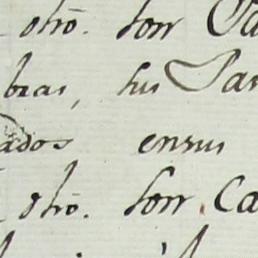 otrô. son
bras, sus Par
ados ensus
otrô. son Ca